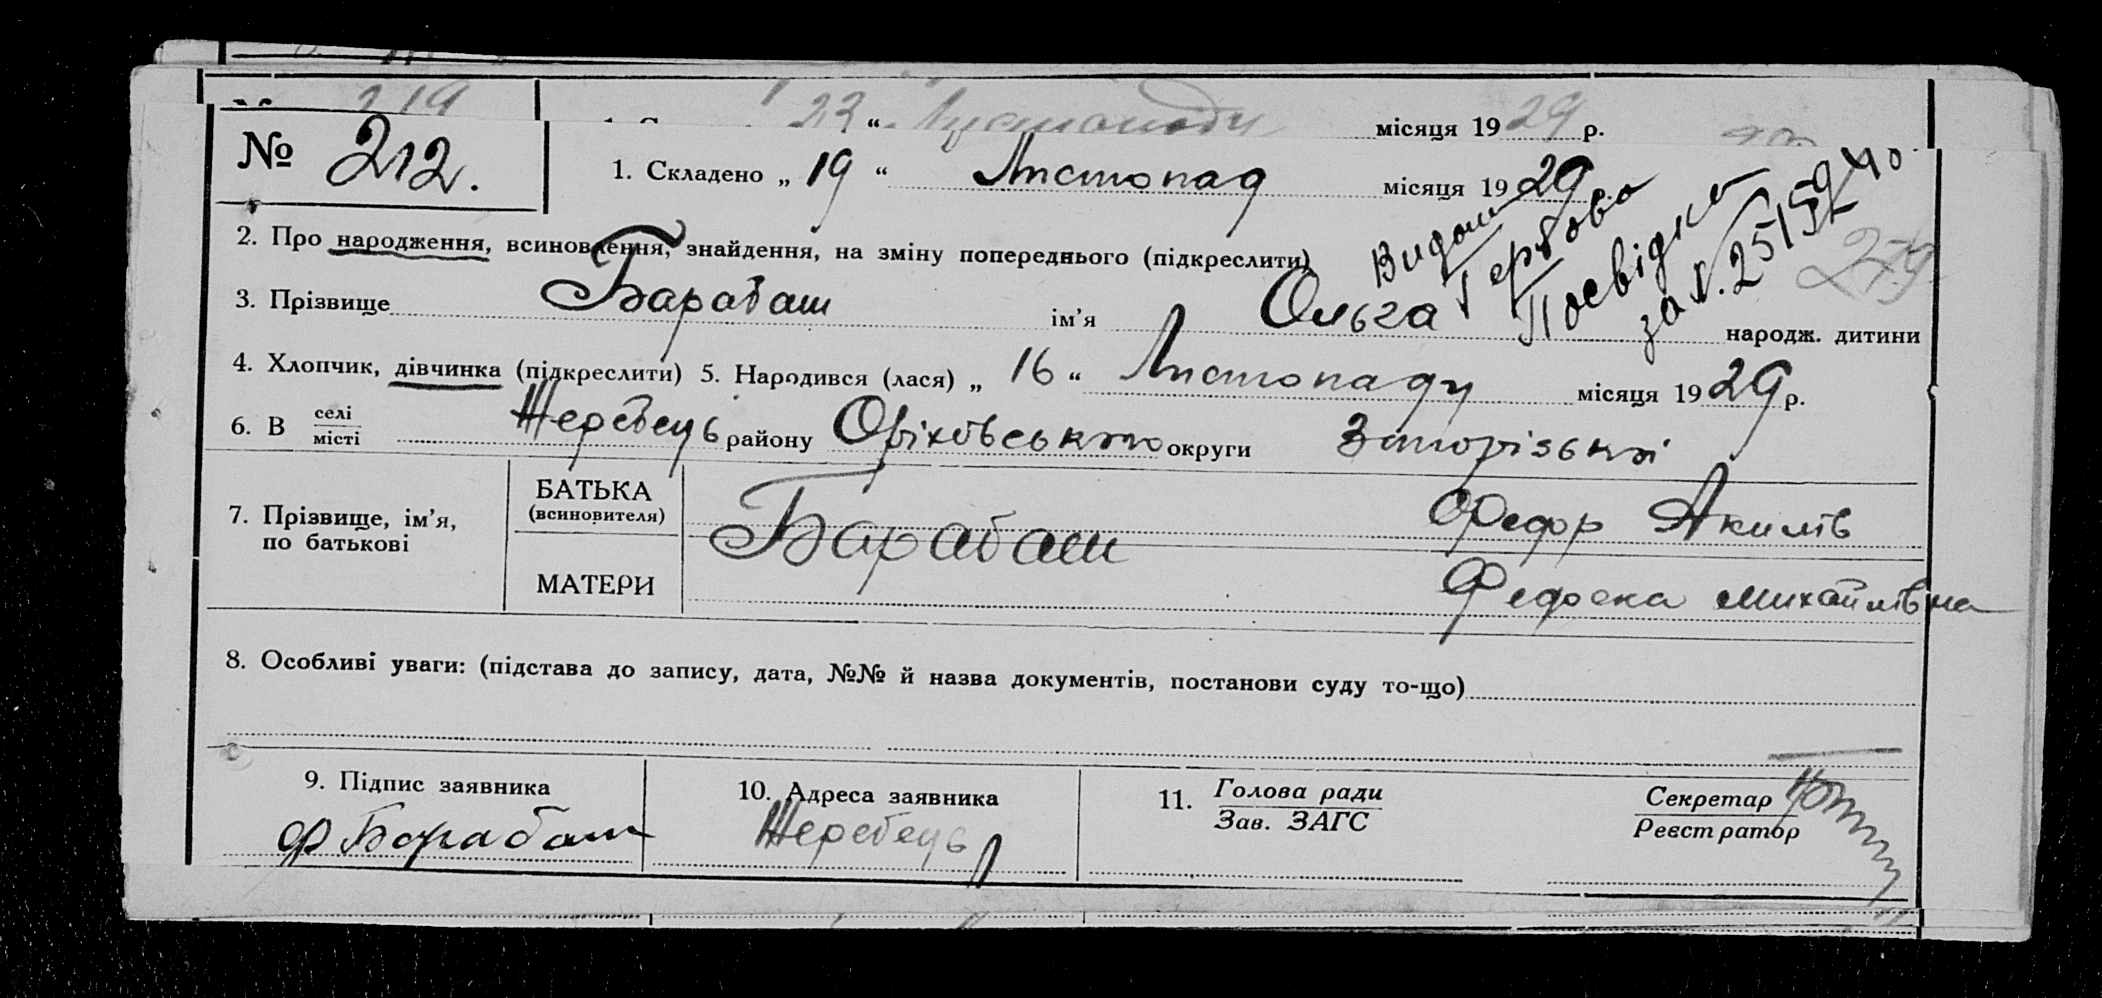 219
23 “ Листопаду місяця 1929 р.
№ 212.
1. Складено „ 19 “ Листопад місяця 1929
Видано Гербова
Посвідка
за №. 25152
279
2. Про народження, всиновлення, знайдення, на зміну попереднього (підкреслити)
3. Прізвище Барабаш ім’я Ольга народж. дитини
4. Хлопчик, дівчинка (підкреслити) 5. Народився (лася) „ 16 “ Листопаду місяця 1929 р.
6. В селі/місті Жеребець району Оріхівського округи Запорізької
7. Прізвище, ім’я, по батькові
БАТЬКА (всиновителя)
Барабаш Федор Акилів
МАТЕРИ
Федоска Михайлівна
8. Особливі уваги: (підстава до запису, дата, №№ й назва документів, постанови суду то-що)
9. Підпис заявника
Ф Барабаш
10. Адреса заявника
Жеребець
11. Голова ради
Зав. ЗАГС
Секретар
Реєстратор